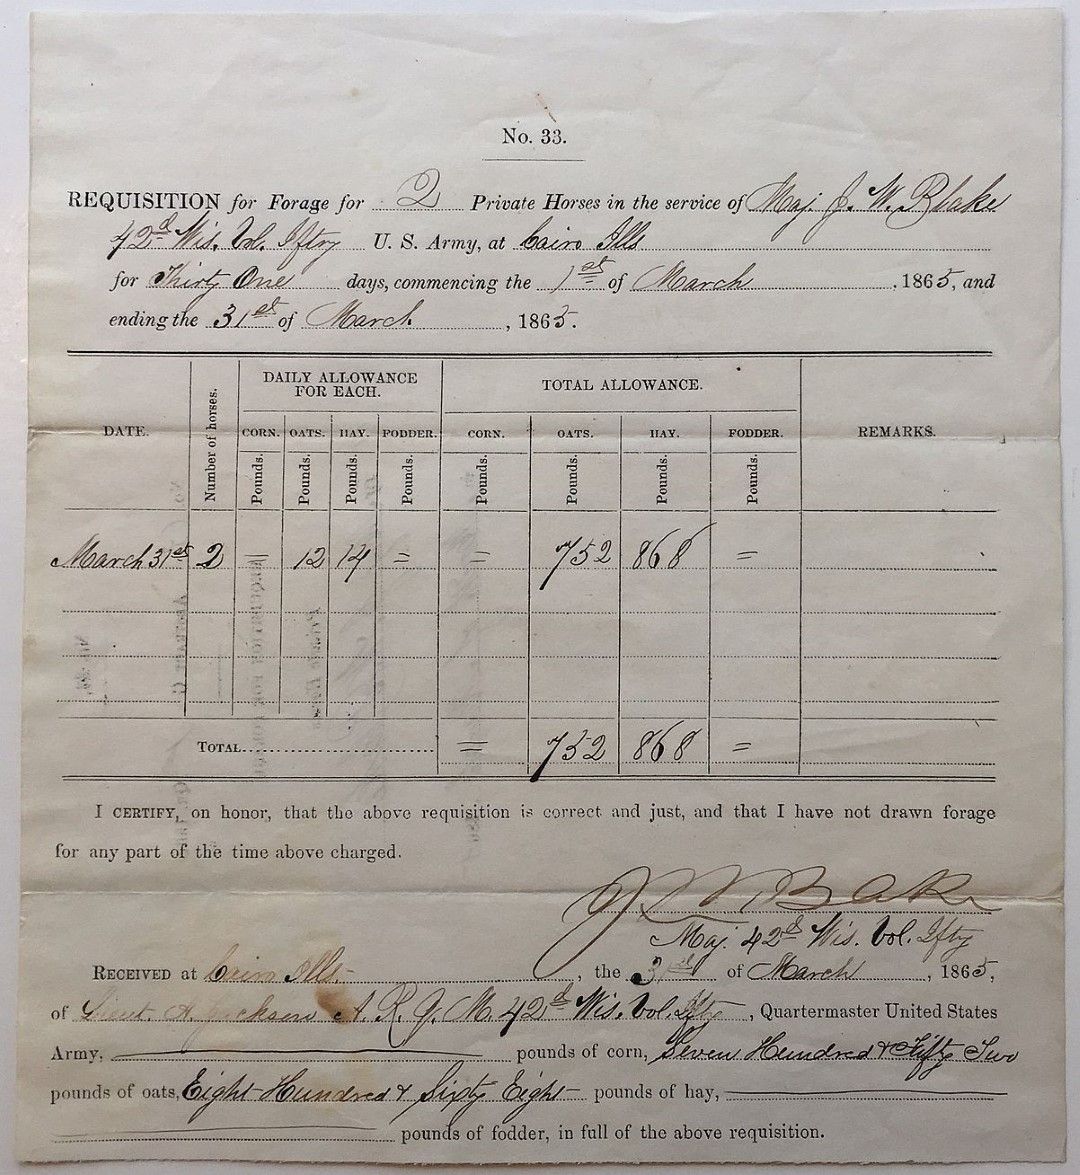 No. 33.
REQUISITION for Forage for 2 Private Horses in the service of Maj. J. W. Blake
42d Wis. Vol. Iftry U. S. Army, at Cairo Ills
for Thirty One days, commencing the 1st of March, 1865, and
ending the 31st of March, 1865.
DATE. Number of horses. DAILY ALLOWANCE FOR EACH. TOTAL ALLOWANCE. REMARKS.
CORN. OATS. HAY. FODDER. CORN. OATS. HAY. FODDER.
Pounds. Pounds. Pounds. Pounds. Pounds. Pounds. Pounds. Pounds.
March 31st 2 = 12 14 = = 752 868 =
TOTAL = 752 868 =
I CERTIFY, on honor, that the above requisition is correct and just, and that I have not drawn forage
for any part of the time above charged.
J W Blake
Maj. 42d Wis. Vol. Ifty
RECEIVED at Cairo Ills, the 31st of March, 1865,
of Lieut. A. Jackson A. R. Q. M. 42d Wis. Vol. Ifty, Quartermaster United States
Army, pounds of corn, Seven Hundred & Fifty Two
pounds of oats, Eight Hundred & Sixty Eight pounds of hay,
pounds of fodder, in full of the above requisition.